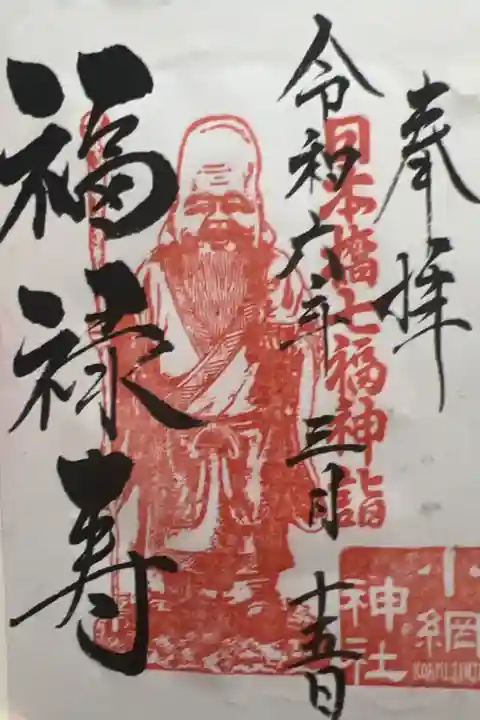 奉拝
日本橋七福神詣
令和六年三月十五日
福禄寿
小網
神社
KOAMIJINJA